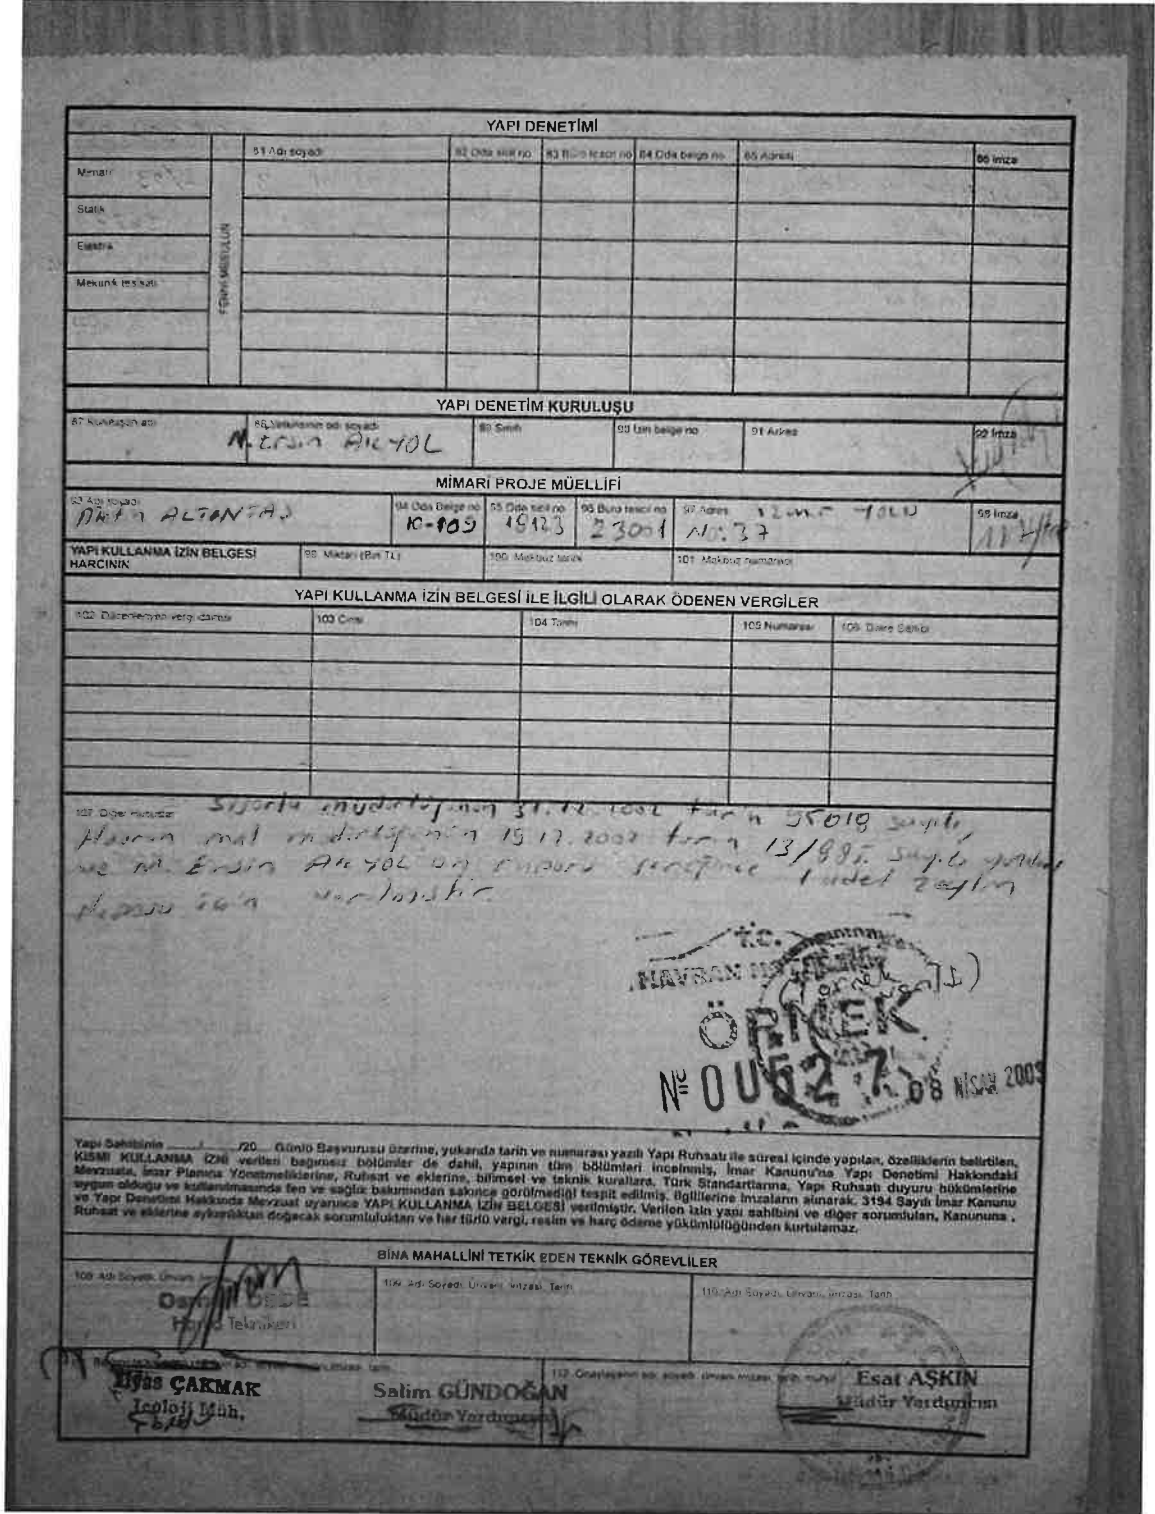 YAPI DENETİMİ
81 Adı soyadı 82 Oda sicil no 83 Büro tescil no 84 Oda belge no 85 Adresi 86 İmza
Mimari
Statik
Elektrik
Mekanik tesisat
FENNİ MESULÜN
YAPI DENETİM KURULUŞU
87 Kuruluşun adı 88 Yetkilisinin adı soyadı 89 Sınıfı 90 İzin belge no 91 Adres 92 İmza
M. Ersin AKYOL
MİMARİ PROJE MÜELLİFİ
93 Adı soyadı 94 Oda Belge no 95 Oda sicil no 96 Büro tescil no 97 Adres 98 İmza
ALTINTAŞ 10-109 18123 23001 İzmir YOLU No: 37
YAPI KULLANMA İZİN BELGESİ HARCININ 99. Miktarı (Bin TL) 100. Makbuz tarihi 101. Makbuz numarası
YAPI KULLANMA İZİN BELGESİ İLE İLGİLİ OLARAK ÖDENEN VERGİLER
102. Düzenleyen vergi dairesi 103 Cinsi 104 Tarihi 105 Numarası 106. Daire Sahibi
107. Diğer hususlar Sigorta müdürlüğünün 31.12.2002 tarih 95018 sayılı,
Havran mal müdürlüğünün 19.12.2002 tarih 13/985 sayılı yazıları
ve M. Ersin AKYOL un raporu gereğince 1 adet zeytin
Deposu için verilmiştir.
T.C.
HAVRAN
ÖRNEK
№ 00527 08 NİSAN 2003
Yapı Sahibinin ....../....../20.... Günlü Başvurusu üzerine, yukarıda tarih ve numarası yazılı Yapı Ruhsatı ile süresi içinde yapılan, özelliklerin belirtilen,
KISMI KULLANMA İZNİ verilen bağımsız bölümler de dahil, yapının tüm bölümleri incelenmiş, İmar Kanunu'na Yapı Denetimi Hakkındaki
Mevzuata, İmar Planına Yönetmeliklerine, Ruhsat ve eklerine, bilimsel ve teknik kurallara, Türk Standartlarına, Yapı Ruhsatı duyuru hükümlerine
uygun olduğu ve kullanılmasında fen ve sağlık bakımından sakınca görülmediği tespit edilmiş, ilgililerine imzaların alınarak, 3194 Sayılı İmar Kanunu
ve Yapı Denetimi Hakkında Mevzuat uyarınca YAPI KULLANMA İZİN BELGESİ verilmiştir. Verilen izin yapı sahibini ve diğer sorumluları, Kanununa,
Ruhsat ve eklerine aykırılıktan doğacak sorumluluktan ve her türlü vergi, resim ve harç ödeme yükümlülüğünden kurtulamaz.
BİNA MAHALLİNİ TETKİK EDEN TEKNİK GÖREVLİLER
108. Adı Soyadı, Ünvanı, 109. Adı Soyadı, Ünvanı, İmzası, Tarih 110. Adı Soyadı, Ünvanı, İmzası, Tarih
Osman DEDE
Harita Teknikeri
112. Onaylayanın adı, soyadı, ünvanı, imzası, tarih, mühür
İlyas ÇAKMAK Salim GÜNDOĞAN Esat AŞKIN
Jeoloji Müh. Müdür Yardımcısı Müdür Yardımcısı